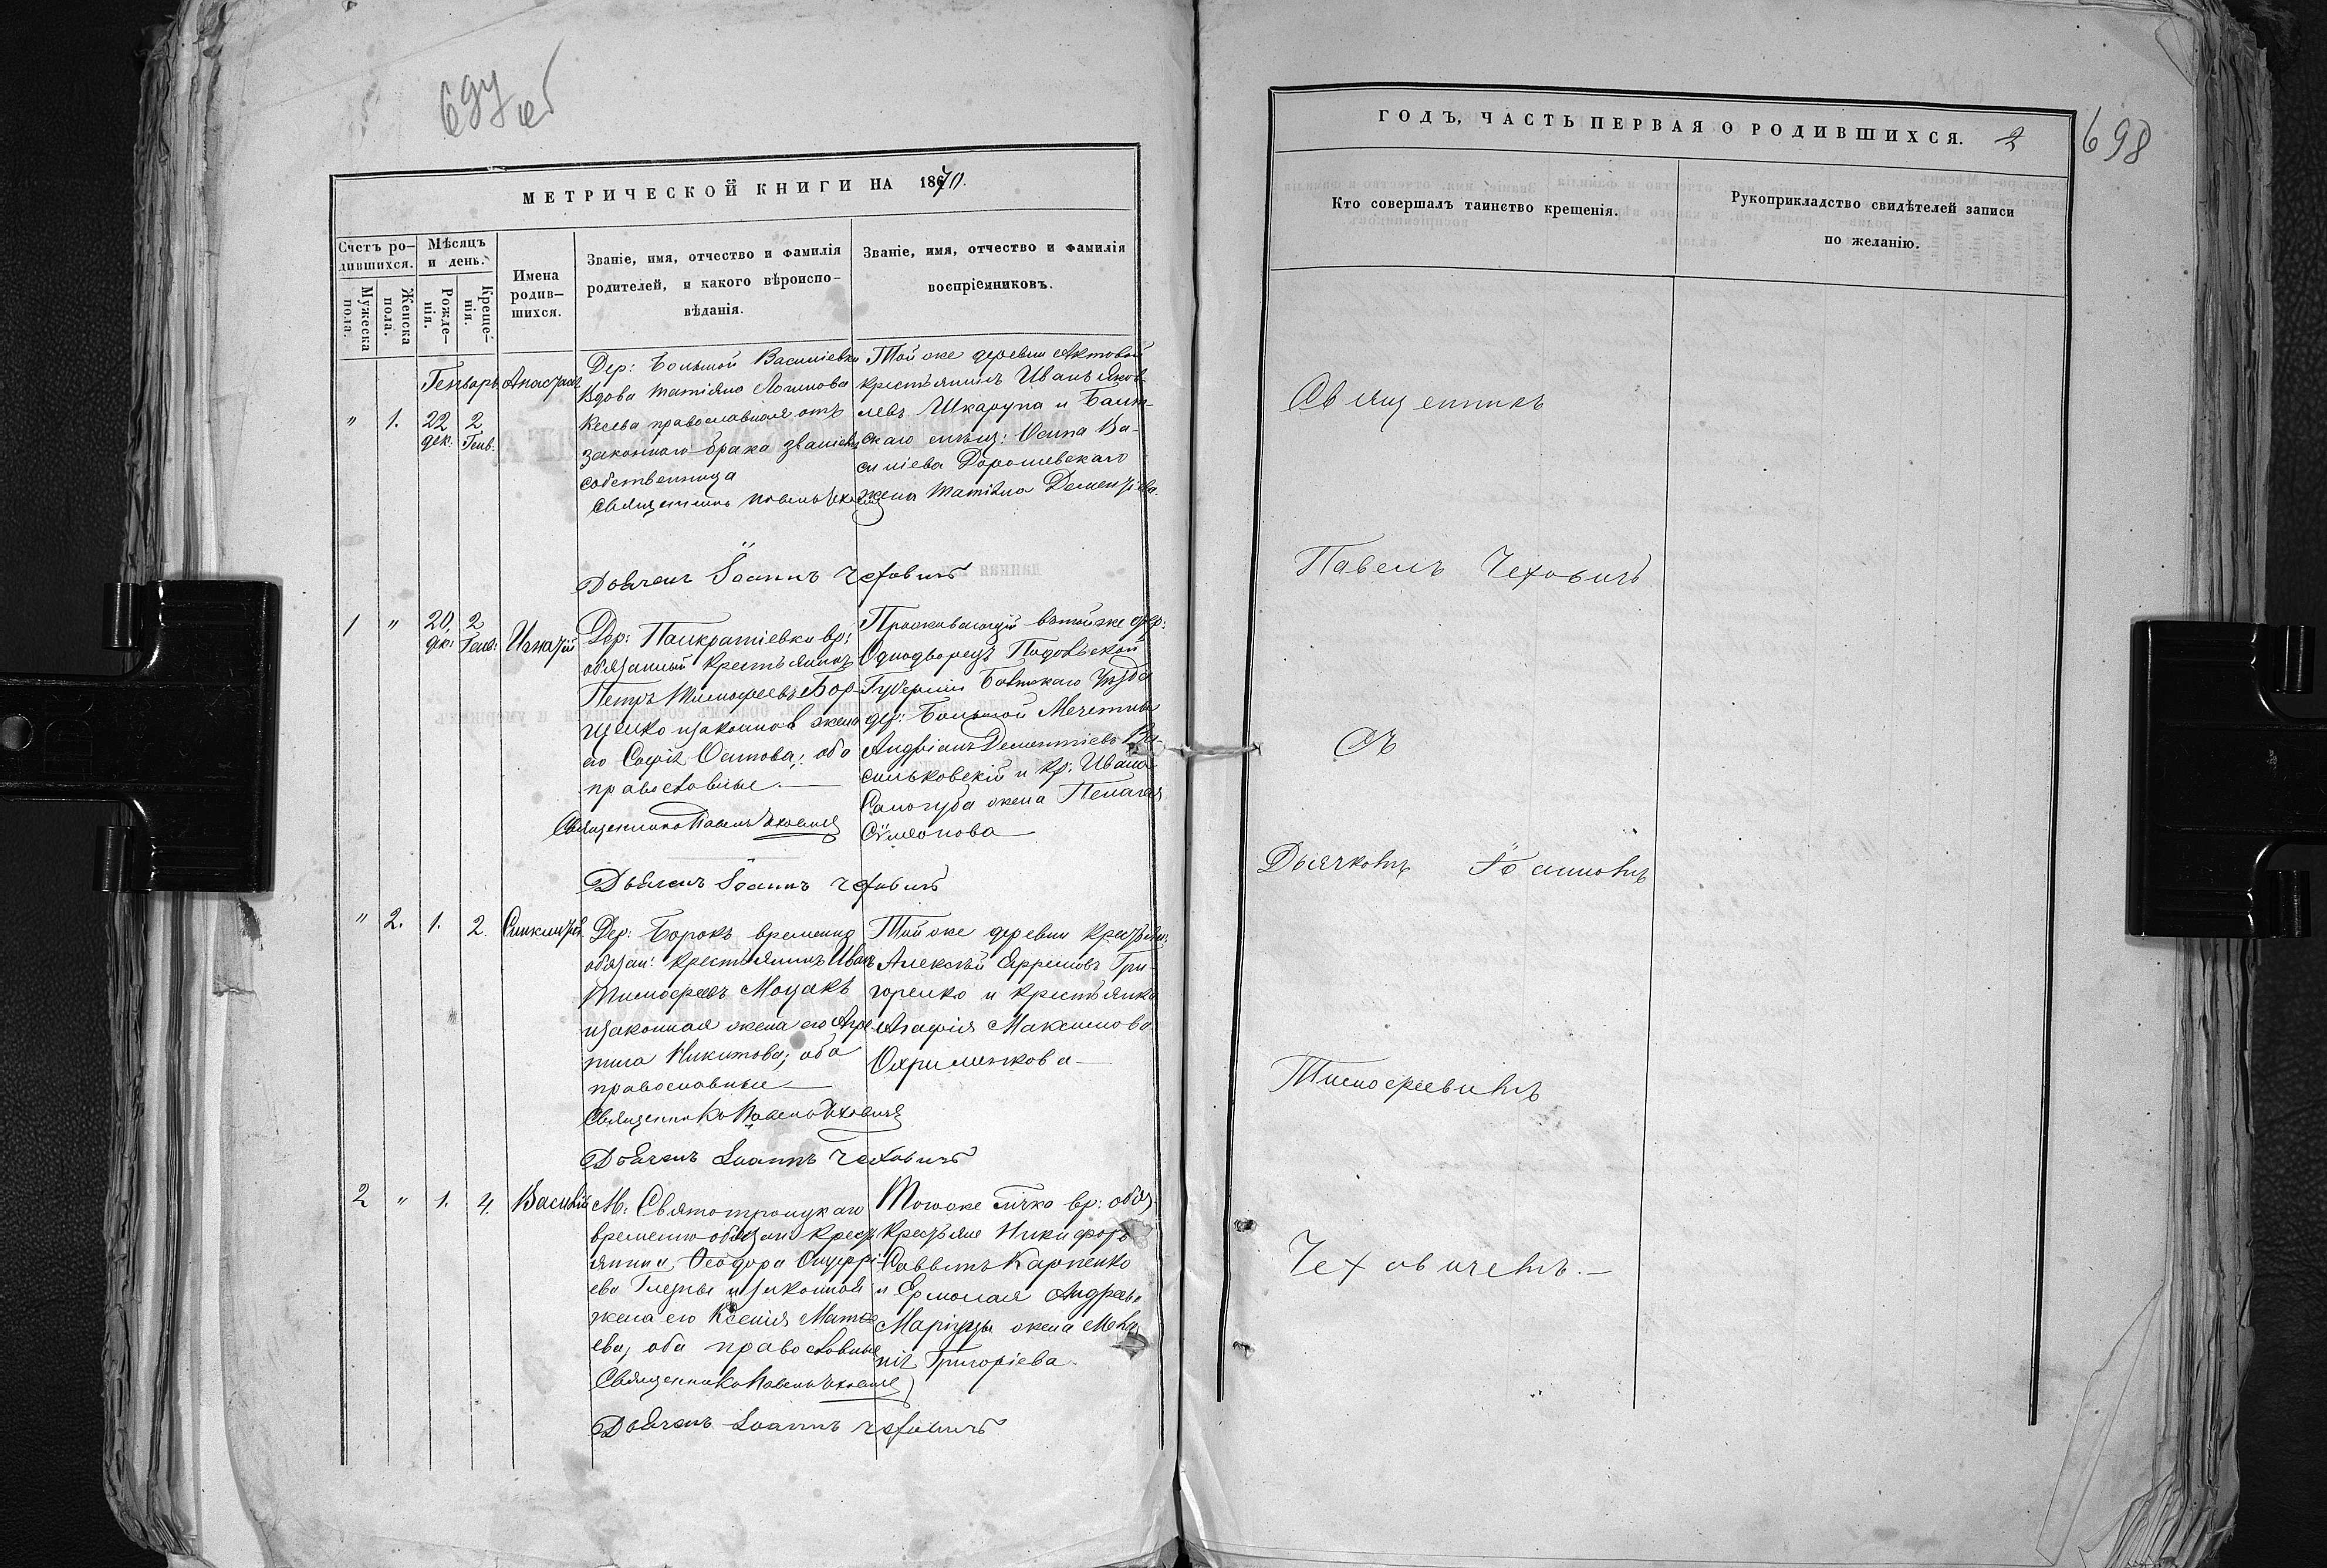 697 об
МЕТРИЧЕСКОЙ КНИГИ НА 1870.
Счетъ ро-
дившихся.
Мужеска
пола.
Женска
пола.
Мѣсяцъ
и день.
Рожде-
нія.
Креще-
нія.
Имена
родив-
шихся.
Званіе, имя, отчество и фамилія
родителей, и какого вѣроиспо-
вѣданія.
Званіе, имя, отчество и фамилія
воспріемниковъ.
Генварь
" 1. 22 дек: 2 Генв:
Дер: Большой Василіевки
Вдова Татіяна Логинова
православная отъ
законнаго брака
собственница
Священникъ Павелъ Чеховичъ
Той же деревни
крестьянинъ Иванъ Яков-
левъ Шкарупа и Балт-
скаго Осипа Ва-
силіева Дорошевскаго
жена Татіана
Дьячекъ Іоаннъ Чеховичъ
1 " 20 дек: 2 Генв: Игнатій
Дер: Панкратіевки вр:
обязанный крестьянинъ
Петръ Тимофеевъ Бор-
щенко изаконная жена
его Софія Осипова; оба
православные.
Священникъ Павелъ Чеховичъ
Проживающій втойже дер:
Однодворецъ Подольской
Губерніи Балтскаго Уѣзда
дер: Большой Мечетны
Андріанъ Дементіевъ Ва-
сильковскій и кр: Ивана
Саногуба жена Пелагея
Сѵмеонова
Дьячекъ Іоаннъ Чеховичъ
" 2. 1. 2.
Дер: Борокъ временно
обязан: крестьянинъ Иванъ
Тимофеевъ Моцакъ
изаконная жена его Агри-
пина Никитова; оба
православные
Священникъ Павелъ Чеховичъ
Той же деревни
Алексѣй Ефремовъ Гри-
горенко и крестьянка
Агафія Максимова
Охрименкова
Дьячекъ Іоаннъ Чеховичъ
2 " 1. 4. Василій
М. Святотроицкаго
временно обязан: крест-
янина Ѳеодора
изаконной
жена его Ксенія Матѳе-
ева, оба православные
Священникъ Павелъ Чеховичъ
Тогоже вр: обяз.
Крестьяне Никифоръ
Саввинъ Карпенко
и Ермолая Андреева
жена
Григоріева.
Дьячекъ Іоаннъ Чеховичъ
ГОДЪ, ЧАСТЬ ПЕРВАЯ О РОДИВШИХСЯ. 2
698
Кто совершалъ таинство крещенія.
Рукоприкладство свидѣтелей записи
по желанію.
Священникъ
Павелъ Чеховичъ
Съ
Дьячкомъ Іоанномъ
Тимофеевичемъ
Чеховичемъ.